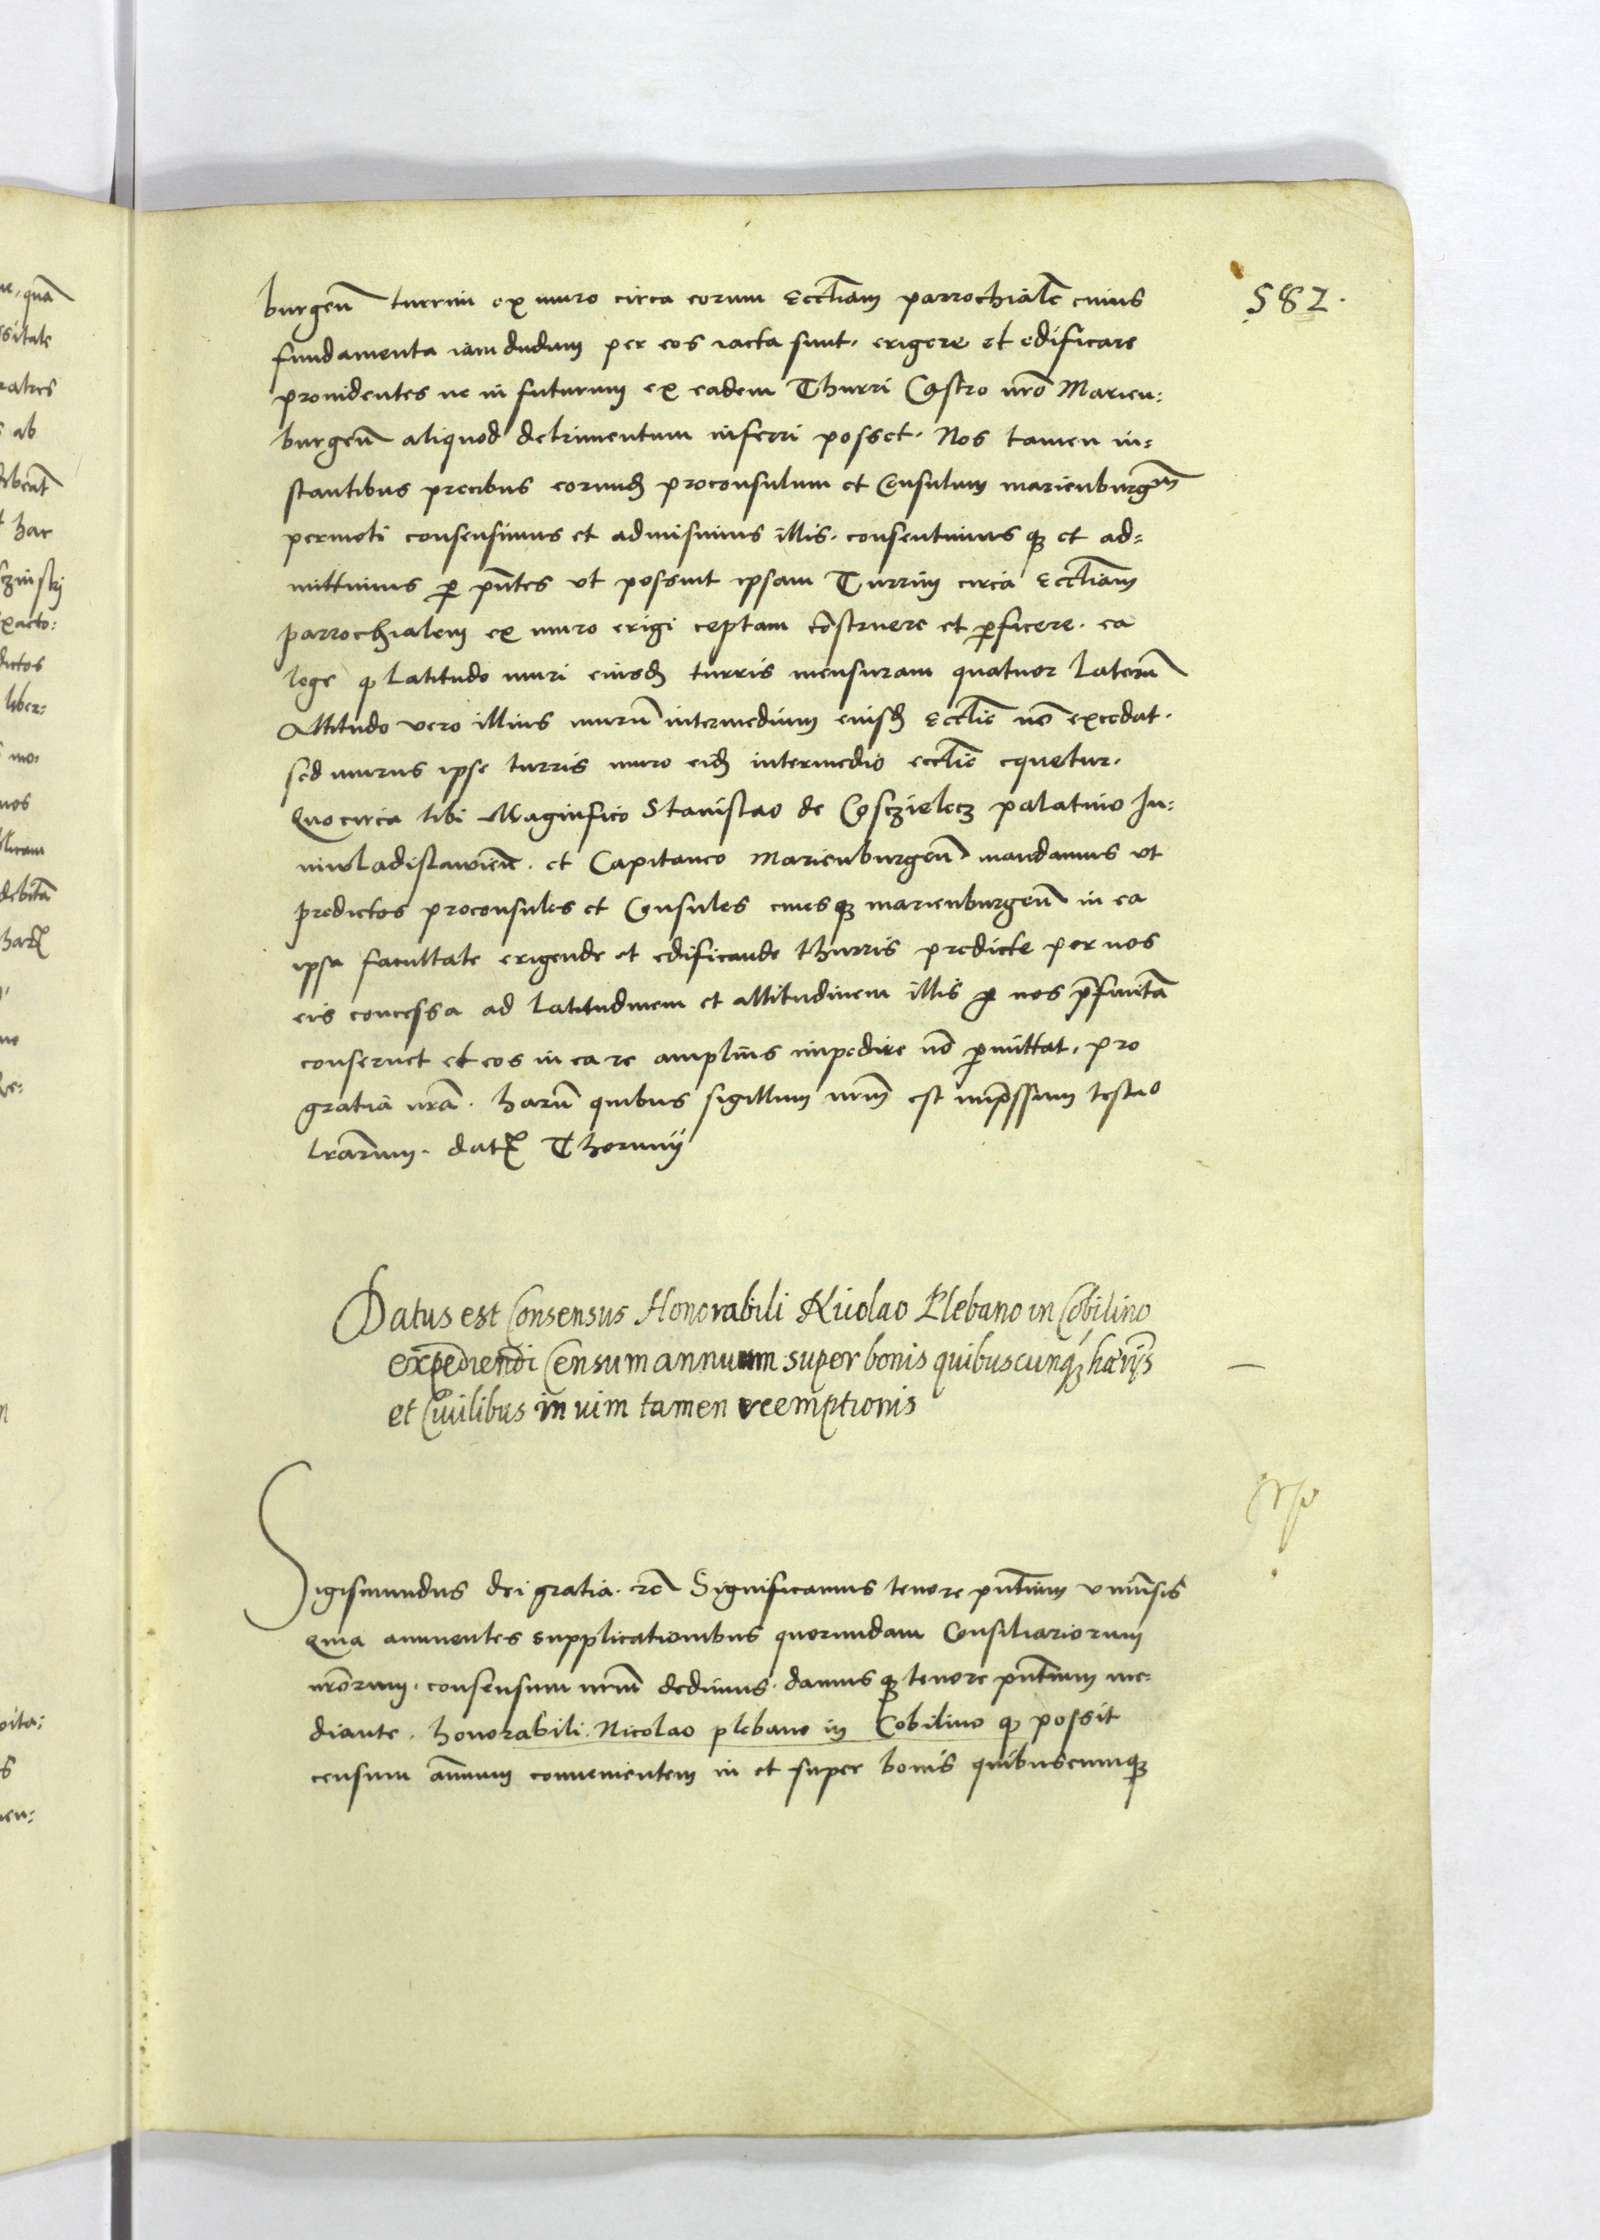 582.
burgeñ turrim ex muro circa eorum Eccl̃iam parrochialẽ cuius
fundamenta iam dudum per eos iacta sunt. erigere et edificare
prouidentes ne in futurum ex eadem Thurri Castro nr̃o Marien:
burgeñ aliquod detrimentum inferri posset. Nos tamen in=
stantibus precibus eorund̃ proconsulum et Consulum marienburgeñ
permoti consensimus et admisimus illis. consentimusq̃ et ad=
mittimus p̱ pñtes vt possint ipsam Turrim circa Eccl̃iam
parrochialem ex muro erigi ceptam cõstruere et p̱ficere. ea
lege q̱ latitudo muri eiusd̃ turris mensuram quatuor laterũ
Altitudo vero illius murũ intermedium eiusd̃ Eccl̃ie nõ excedat.
sed murus ipse turris muro eid̃ intermedio eccl̃ie equetur.
Quocirca tibi Magnifico Stanislao de Cosczielecz palatino Iu=
niwladislawieñ. et Capitaneo Marienburgeñ mandamus vt
predictos proconsules et Consules ciuesq̃ marienburgeñ in ea
ipsa facultate erigende et edificande thurris predicte per nos
eis concessa ad latitudinem et altitudinem illis p̱ nos p̃finitã
conseruet et eos in ea re amplius impedire nõ p̱mittat. pro
gratiã nr̃ã. harũ quibus sigillum nr̃m est imp̃ssum testi̊o
lr̃arum. dat̃ Thorunij
Datus est Consensus Honorabili Nicolao Plebano in Cobilino
expediendi Censum annuum super bonis quibuscunq̃ hær̃ijs
et Ciuilibus in uim tamen reemptionis
Sigismundus dei gratia. rc̃ Significamus tenore pñtium vniũsis
Quia annuentes supplicationibus quorundam Consiliariorum
nr̃orum. consensum nr̃m dedimus. damusq̃ tenore pñtium me=
diante. honorabili. Nicolao plebano in Cobilino q̱ possit
censum ãnuum conuenientem in et super bonis quibuscumq̃